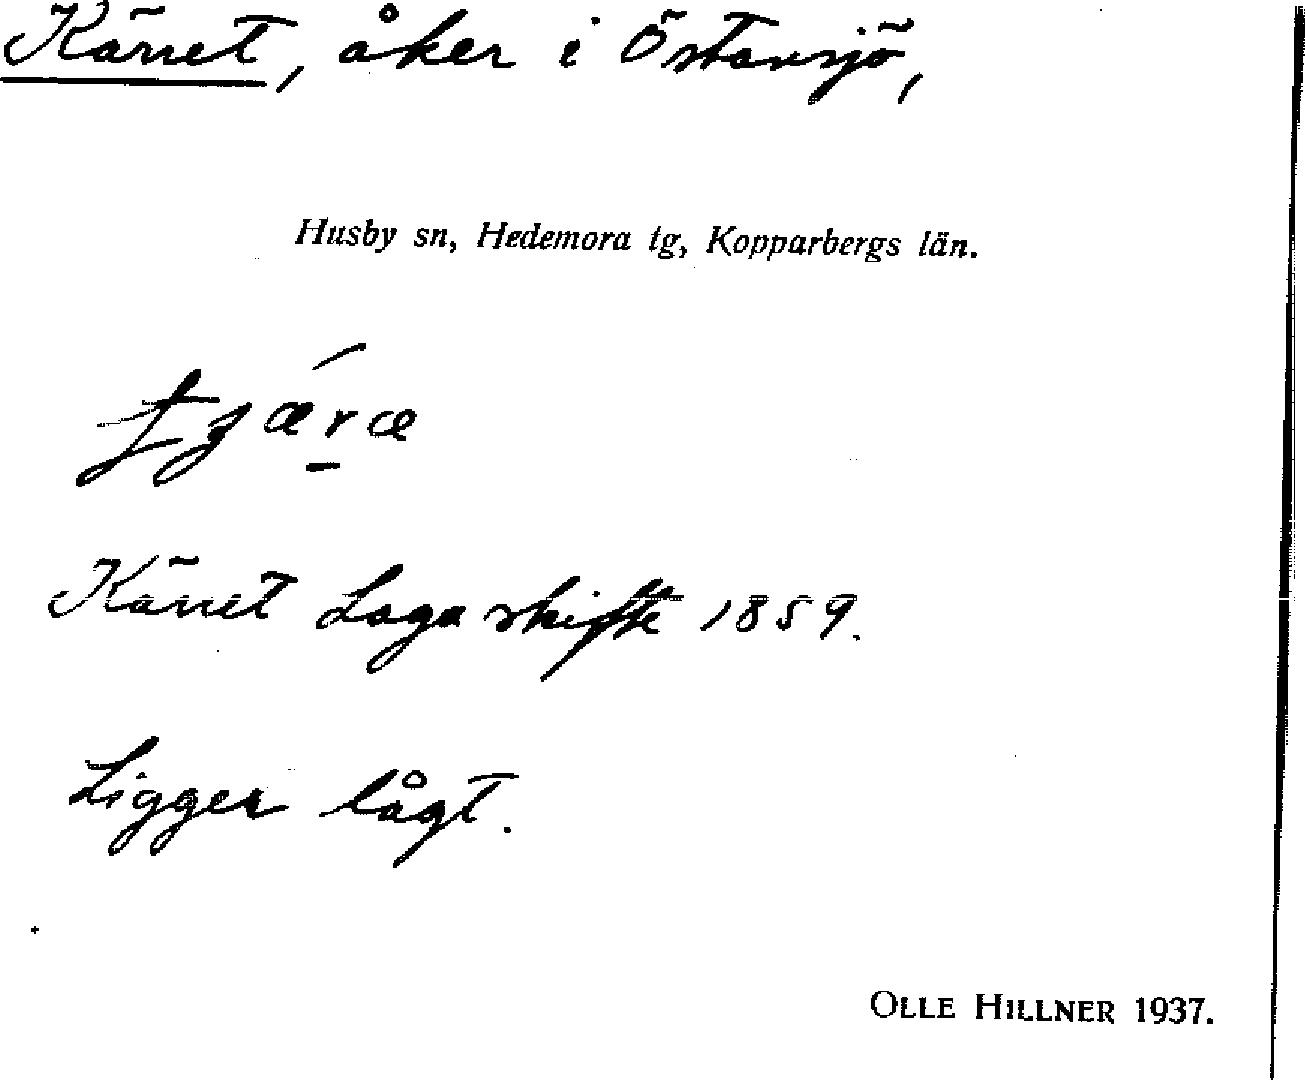 Kärret, åker i Östansjö,
Husby sn, Hedemora tg, Kopparbergs län.
Kärret Laga skifte 1859.
Ligger lågt.
OLLE HILLNER 1937.